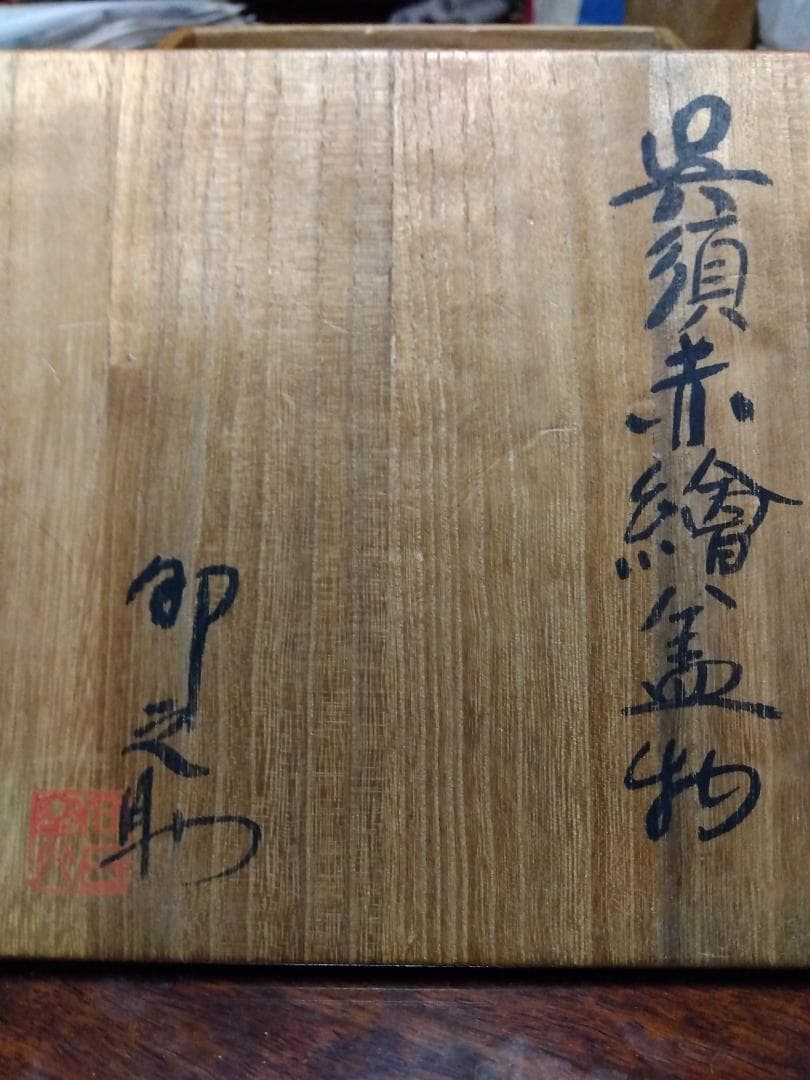 呉須赤繪盖物
卯之助